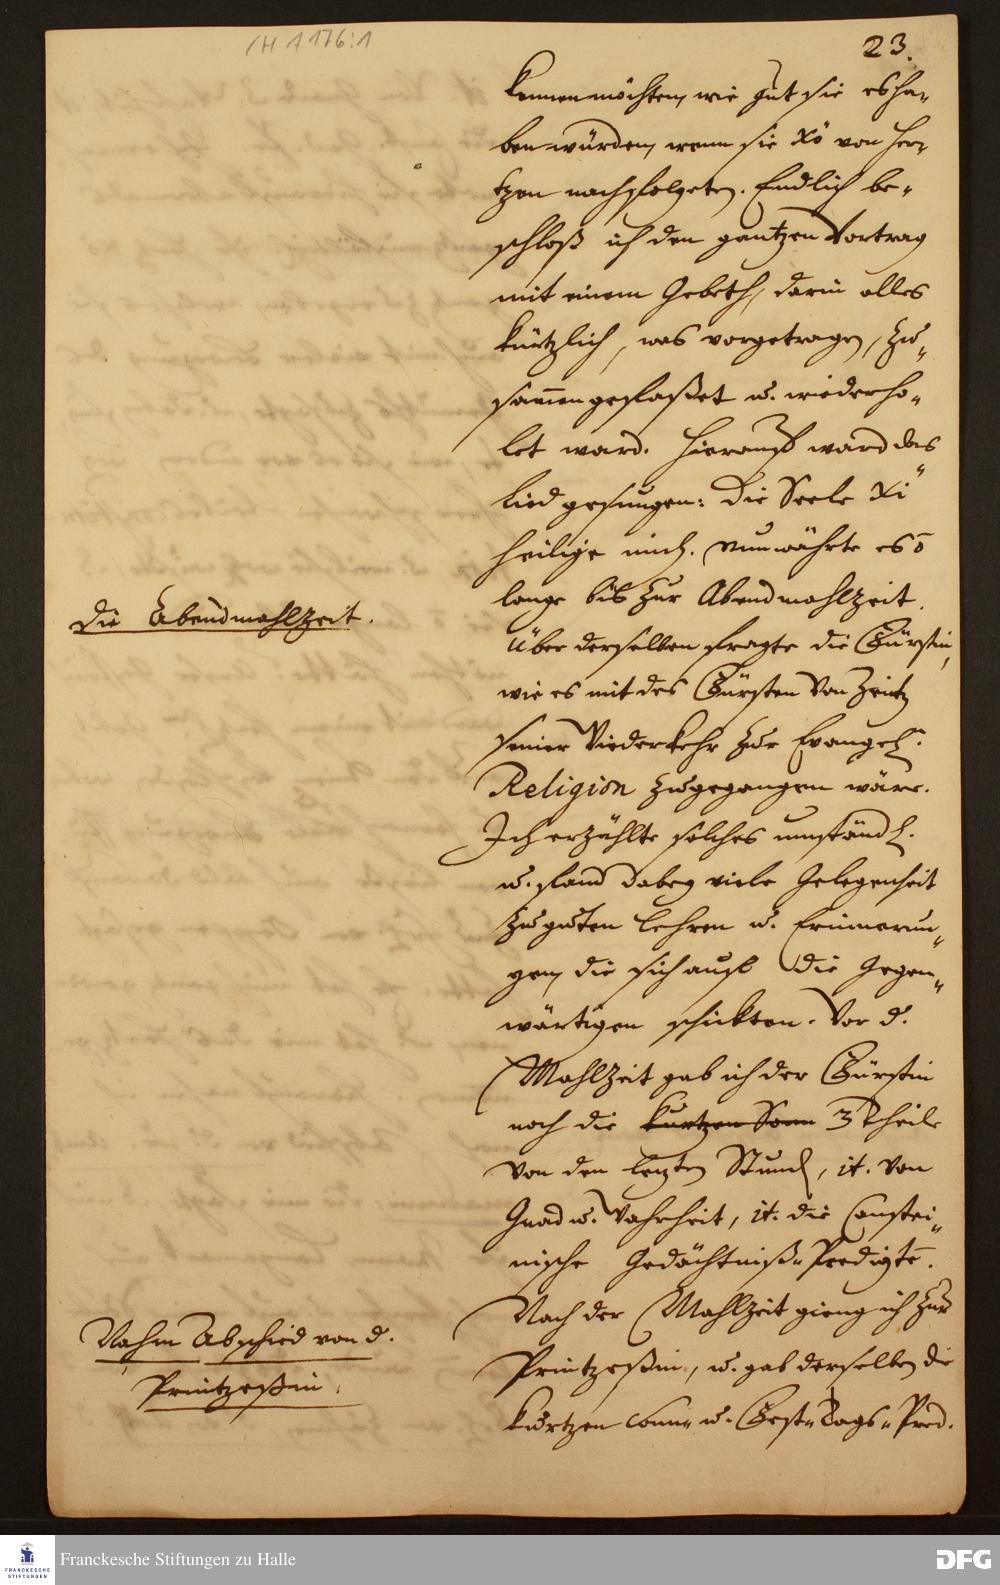 /H A 176:1
23.
kennen möchten, wie gut sie es ha-
ben würden, wenn sie Xo von Her-
tzen nachfolgeten. Endlich be-
schloß ich den gantzen Vortrag
mit einem Gebeth, darin alles
kürtzlich, was vorgetragen, zu-
sammengefaßet u. wiederho-
let ward. Hierauf ward das
Lied gesungen: Die Seele Xi
heilige mich. Nun währte es
lange bis zur Abendmahlzeit.
Die Abendmahlzeit.
Über derselben fragte die Fürstin,
wie es mit des Fürsten von Zeitz
seiner Wiederkehr zur Evangel.
Religion zugegangen wäre.
Ich erzählte solches umständl.
u. fand dabey viele Gelegenheit
zu guten Lehren u. Erinnerun-
gen, die sich auf die Gegen-
wärtigen schickten. Vor d.
Mahlzeit gab ich der Fürstin
noch die kurtzen Sonn 3 Theile
von den letzten Stund, it. von
Gnad u. Wahrheit, it. die Canstei-
nische Gedächtniß-Predigte.
Nach der Mahlzeit gieng ich zur
Nahm Abschied von d.
Printzeßin.
Printzeßin, u. gab derselben die
kurtzen Sonn- u. Fest-Tags-Pred.
FRANCKESCHE STIFTUNGEN
Franckesche Stiftungen zu Halle
DFG